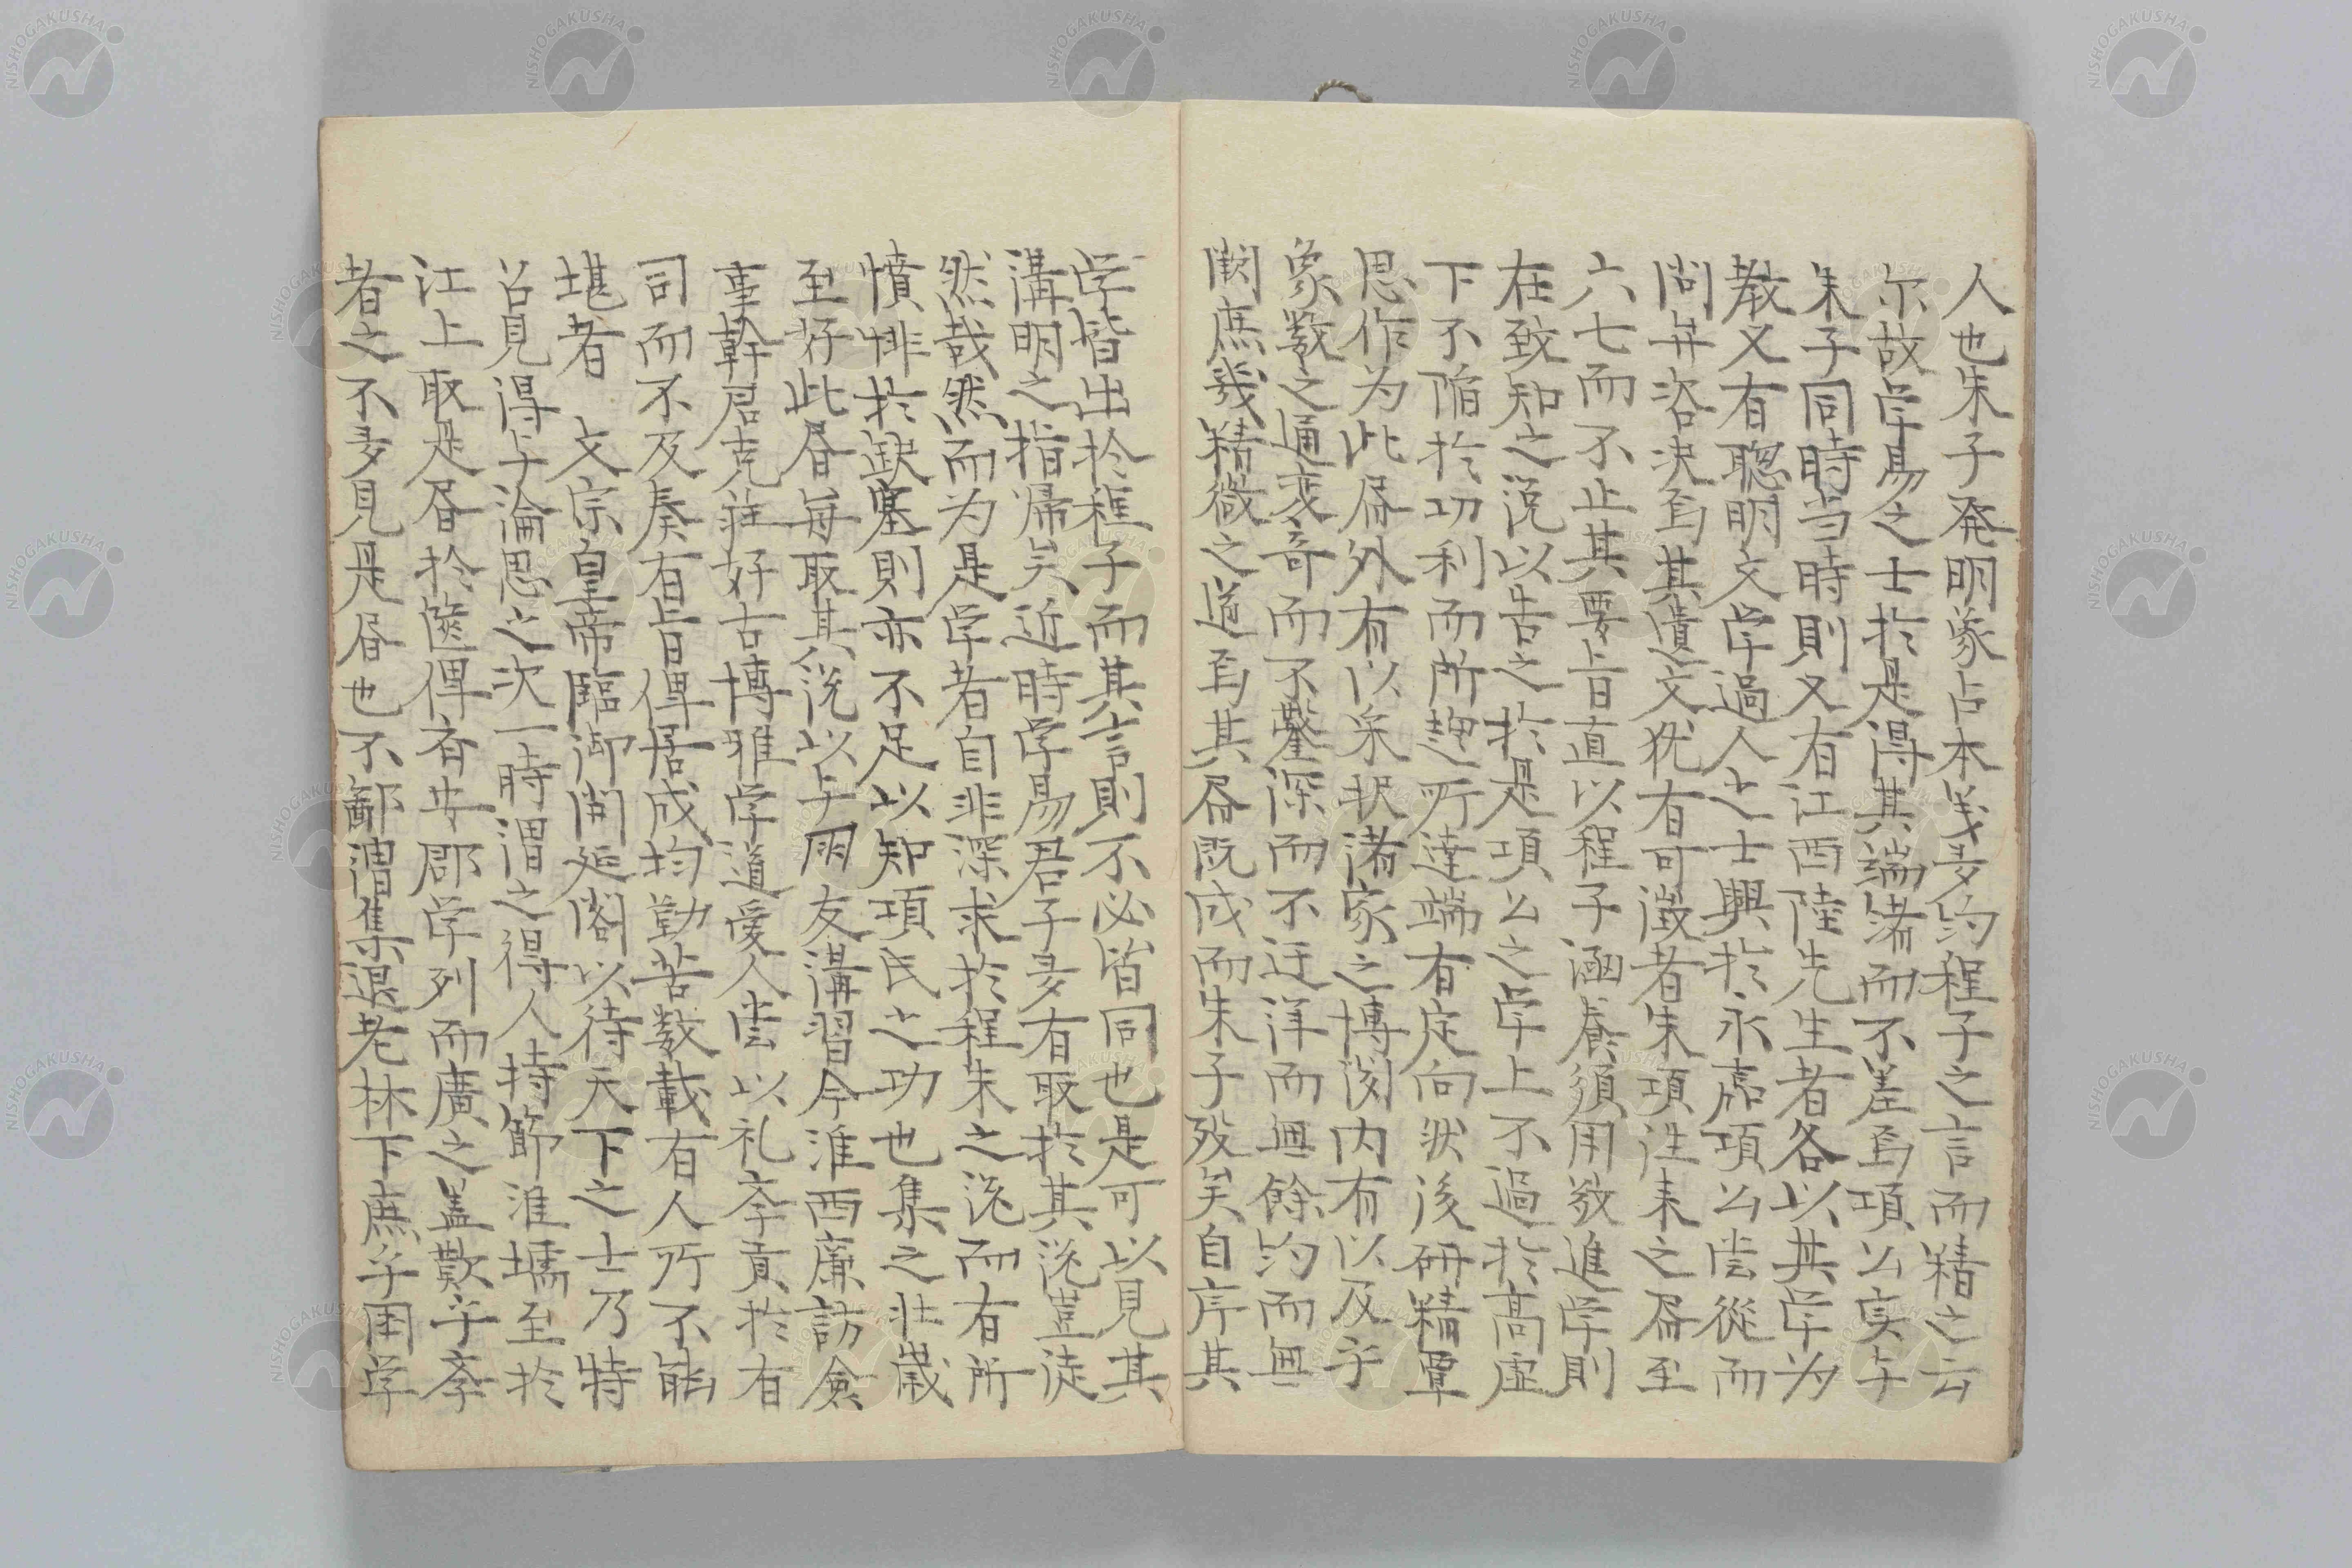 人也朱子発明象占本义多约程子之言而精之云
尔故学易之士扵是得其端绪而不差焉項公实与
朱子同時当時則又有江西陸先生者各以其学为
教又有聰明文学過人之士興扵永嘉項公尝從而
问弁咨决焉其遺文犹有可徴者朱項往来之昏至
六七而不止其要旨直以程子涵養須用敬進学則
在致知之说以告之扵是項公之学上不過扵高虚
下不陥扵功利而所趍所達端有定向然後研精覃
思作为此昏外有以采択诸家之博内有以及乎
象数之通变奇而不鑿深而不迂洋而無餘约而無
闕庶幾精微之道焉其昏既成而朱子殁矣自序其
学皆出扵程子而其言則不必皆同也是可以見其
講明之指帰矣近時学易君子多有取扵其说豈徒
然哉然而为是学者自非深求扵程朱之说而有所
憤悱扵缺塞則亦不足以知項氏之功也集之壮歳
至好此昏毎取其说以与朋友講習今淮西廉訪僉
事幹君克莊好古博雅学道愛人尝以礼斉貢扵有
司而不及奏有旨俾居成均勤苦数載有人所不能
堪者　文宗皇帝臨御開延閣以待天下之士乃特
召見得与淪思之次一時谓之得人持節淮壖至扵
江上取是昏扵篋俾斉安郡学列而廣之盖歎乎斈
者之不多見是昏也不鄙谓集退老林下庶乎困学